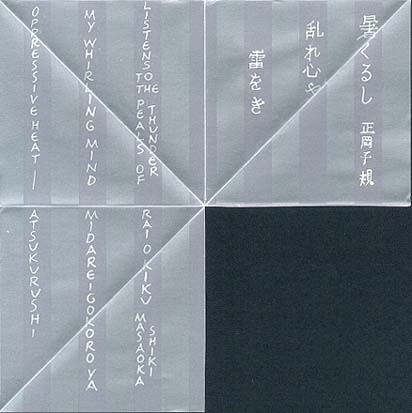 暑くるし
乱れ心や
雷をき
正岡子規
OPPRESSIVE HEAT —
MY WHIRLING MIND
LISTENS TO THE PEALS OF
THUNDER
ATSUKURUSHI
MIDAREIGOKORO YA
RAI O KIKU
MASAOKA
SHIKI